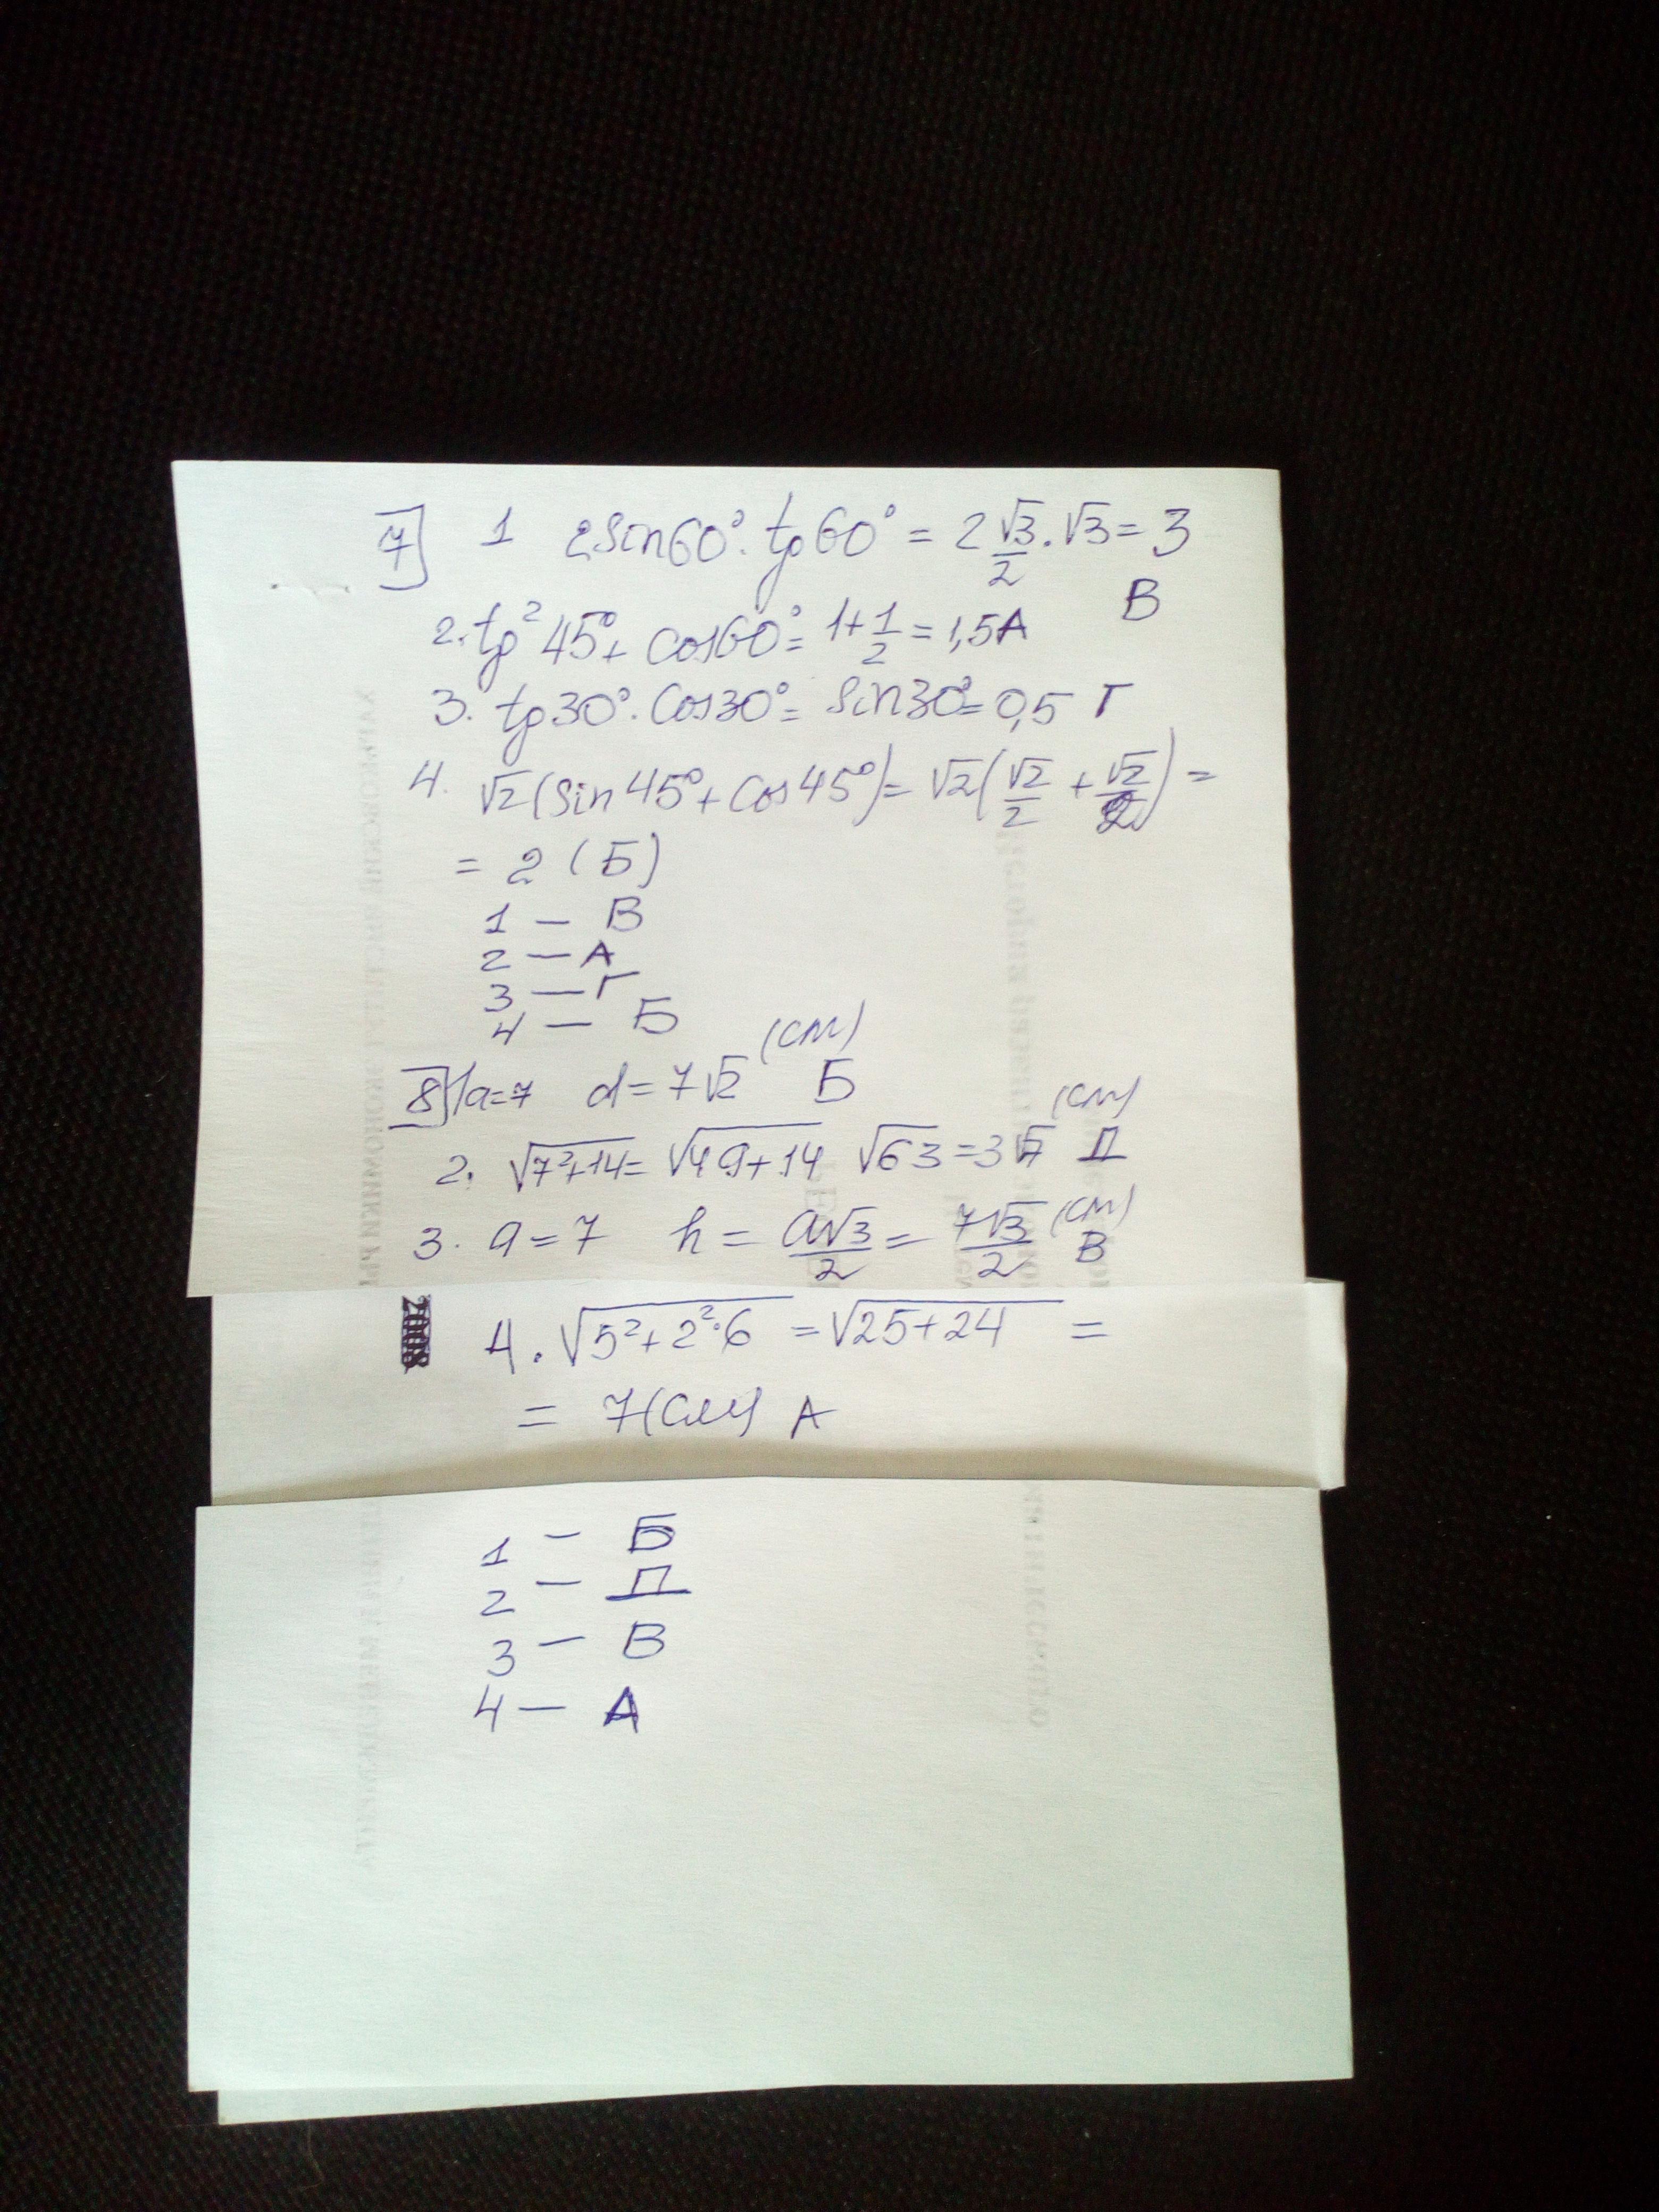 7 1 2sin60°·tg60° = 2 √3/2·√3 = 3
В
2. tg²45°+ cos60°= 1+1/2 = 1,5 А
3. tg30°·Cos30°= sin30°= 0,5 Г
4. √2(sin45°+Cos45°)= √2(√2/2+√2/2) =
= 2 (Б)
1 – В
2 – А
3 – Г
4 – Б
8 1 a=7 d=7√2 (см) Б
2. √7²+14= √49+14 √63=3√7 (см) Д
3. a=7 h= a√3/2= 7√3/2 (см) В
2008
4. √5²+2²·6 =√25+24 =
= 7(см) А
1 – Б
2 – Д
3 – В
4 – А